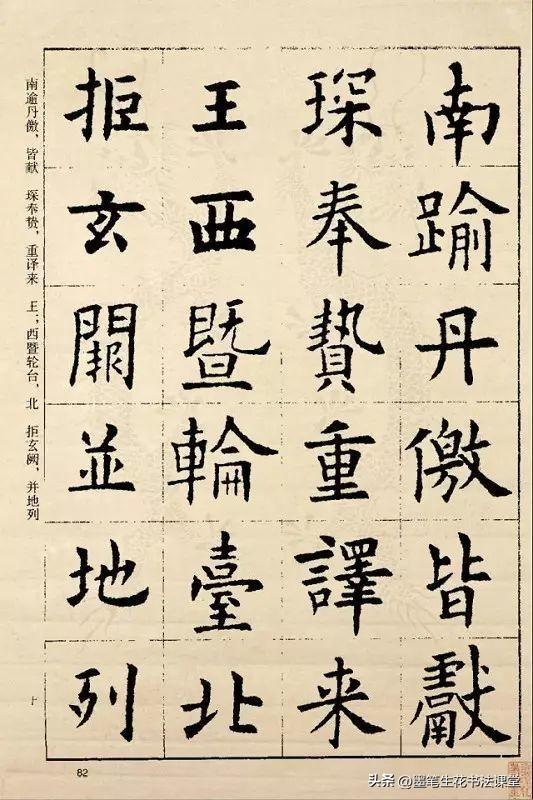 南踰丹徼皆獻
琛奉贄重譯来
王西暨輪臺北
拒玄闕並地列
南逾丹徼，皆献　琛奉贽，重译来　王；西暨轮台，北　拒玄阙，并地列
十
82
头条 @墨笔生花书法课堂